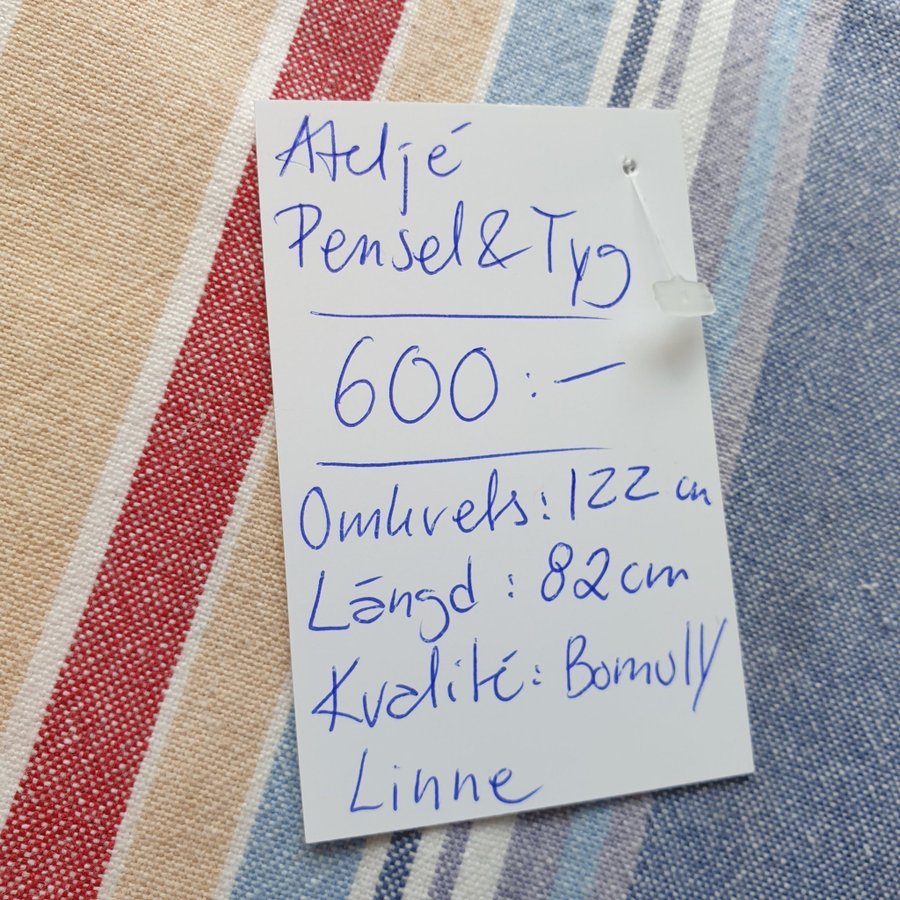 Ateljé
Pensel & Tyg
600:-
Omkrets: 122 cm
Längd: 82 cm
Kvalité: Bomull/
Linne